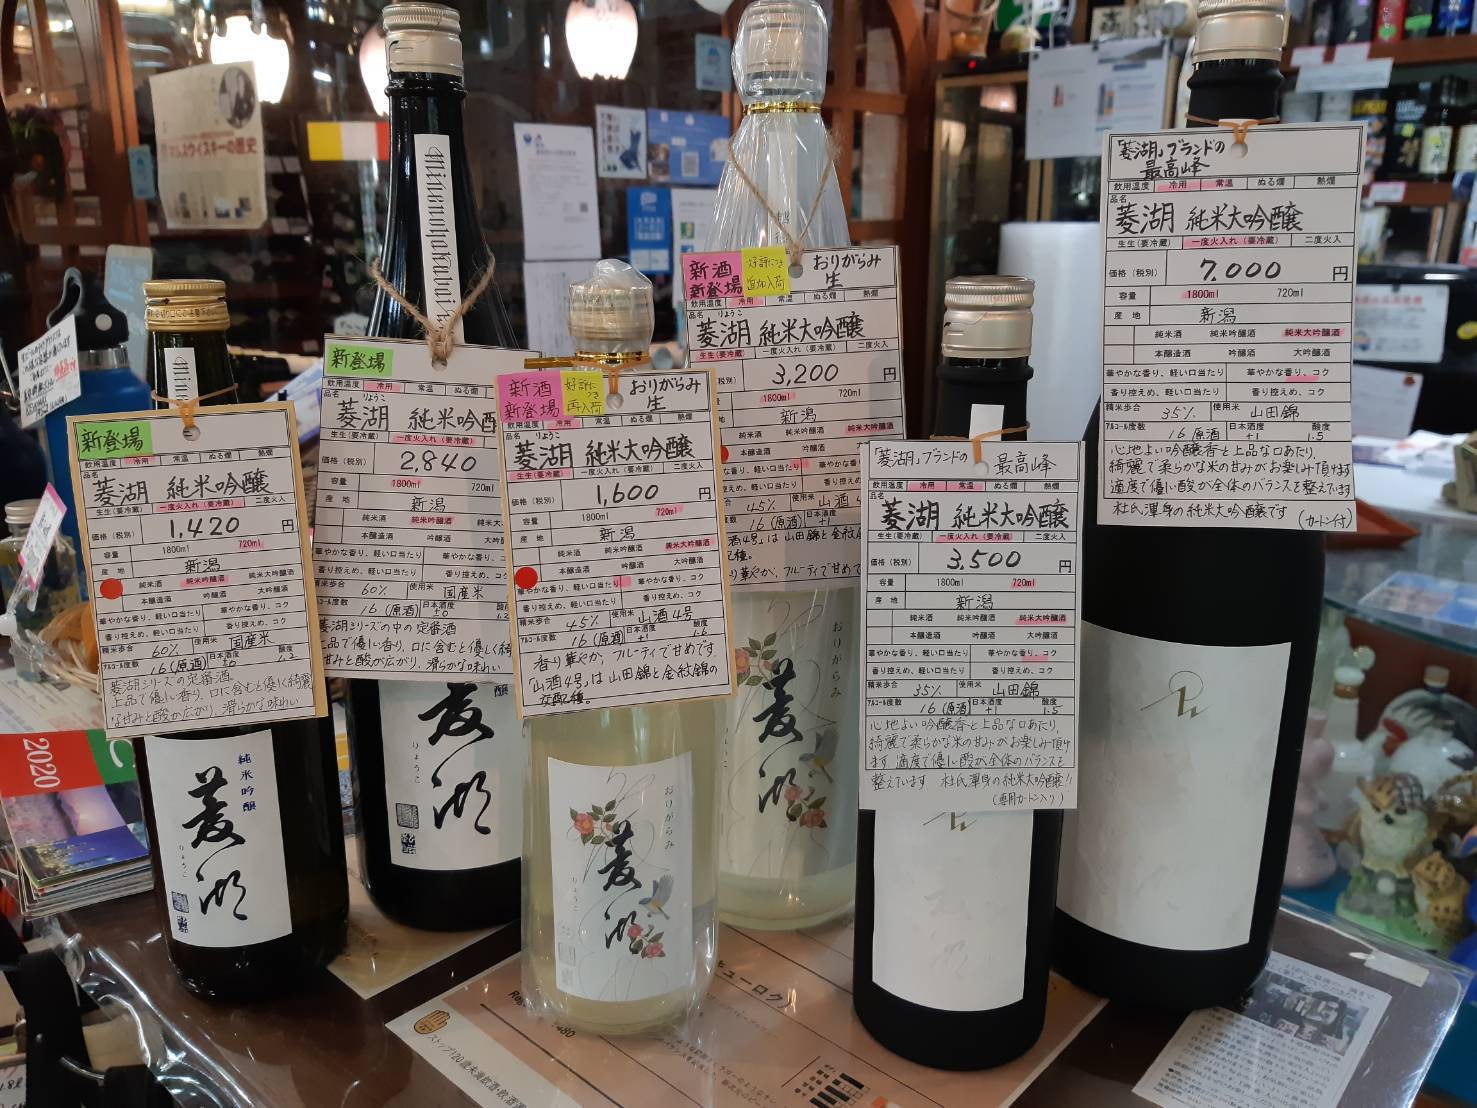 新登場
飲用温度 冷用 常温 ぬる燗 熱燗
品名 りょうこ
菱湖 純米吟醸
生生(要冷蔵) 一度火入れ(要冷蔵) 二度火入
価格(税別) 1,420 円
容量 1800ml 720ml
産地 新潟
純米酒 純米吟醸酒 純米大吟醸酒
本醸造酒 吟醸酒 大吟醸酒
華やかな香り、軽い口当たり 華やかな香り、コク
香り控えめ、軽い口当たり 香り控えめ、コク
精米歩合 60% 使用米 国産米
アルコール度数 16(原酒) 日本酒度 ±0 酸度 1.2
菱湖シリーズの定番酒
上品で優しい香り、口に含むと優しく綺麗
な甘みと酸が広がり、滑らかな味わい
純米吟醸
菱湖
りょうこ
新登場
飲用温度 冷用 常温 ぬる燗
品名 りょうこ
菱湖 純米吟醸
生生(要冷蔵) 一度火入れ(要冷蔵)
価格(税別) 2,840
容量 1800ml 720ml
産地 新潟
純米酒 純米吟醸酒
本醸造酒 吟醸酒
華やかな香り、軽い口当たり 華やかな香り
香り控えめ、軽い口当たり 香り控えめ、
精米歩合 60% 使用米 国産米
アルコール度数 16(原酒) 日本酒度 ±0 酸度 1.2
菱湖シリーズの中の定番酒
上品で優しい香り、口に含むと優しく綺
甘みと酸が広がり、滑らかな味わい
菱湖
りょうこ
新酒
新登場
好評につき
再入荷
おりがらみ
生
飲用温度 冷用 常温 ぬる燗 熱燗
品名 りょうこ
菱湖 純米大吟醸
生生(要冷蔵) 一度火入れ(要冷蔵) 二度火入
価格(税別) 1,600 円
容量 1800ml 720ml
産地 新潟
純米酒 純米吟醸酒 純米大吟醸酒
本醸造酒 吟醸酒 大吟醸酒
華やかな香り、軽い口当たり 華やかな香り、コク
香り控えめ、軽い口当たり 香り控えめ、コク
精米歩合 45% 使用米 山酒4号
アルコール度数 16(原酒) 日本酒度 酸度 1.6
香り華やか、フルーティで甘めです
「山酒4号」は山田錦と金紋錦の
交配種。
おりがらみ
菱湖
りょうこ
新酒
新登場
好評につき
追加入荷
おりがらみ
生
飲用温度 冷用 常温 ぬる燗 熱燗
品名 りょうこ
菱湖 純米大吟醸
生生(要冷蔵) 一度火入れ(要冷蔵) 二度火入
税別) 3,200 円
1800ml 720ml
新潟
純米酒 純米吟醸酒 純米大吟醸酒
本醸造酒 吟醸酒
45% 使用米 山酒4
16(原酒) 日本酒度 +1
酒4号」は山田錦と金紋
配種。
り華やか、フルーティで甘めで
おりがらみ
菱湖
りょうこ
「菱湖」ブランドの
最高峰
飲用温度 冷用 常温 ぬる燗 熱燗
品名
菱湖 純米大吟醸
生生(要冷蔵) 一度火入れ(要冷蔵) 二度火入
価格(税別) 3,500 円
容量 1800ml 720ml
産地 新潟
純米酒 純米吟醸酒 純米大吟醸酒
本醸造酒 吟醸酒 大吟醸酒
華やかな香り、軽い口当たり 華やかな香り、コク
香り控えめ、軽い口当たり 香り控えめ、コク
精米歩合 35% 使用米 山田錦
アルコール度数 16(原酒) 日本酒度 +1 酸度 1.5
心地よい吟醸香と上品な口あたり、
綺麗で柔らかな米の甘みがお楽しみ頂け
ます 適度で優しい酸が全体のバランスを
整えています 杜氏渾身の純米大吟醸!!
(専用カートン入り)
「菱湖」ブランドの
最高峰
飲用温度 冷用 常温 ぬる燗 熱燗
品名
菱湖 純米大吟醸
生生(要冷蔵) 一度火入れ(要冷蔵) 二度火入
価格(税別) 7,000 円
容量 1800ml 720ml
産地 新潟
純米酒 純米吟醸酒 純米大吟醸酒
本醸造酒 吟醸酒 大吟醸酒
華やかな香り、軽い口当たり 華やかな香り、コク
香り控えめ、軽い口当たり 香り控えめ、コク
精米歩合 35% 使用米 山田錦
アルコール度数 16原酒 日本酒度 +1 酸度 1.5
心地よい吟醸香と上品な口あたり、
綺麗で柔らかな米の甘みがお楽しみ頂けます
適度で優しい酸が全体のバランスを整えています
杜氏渾身の純米大吟醸です (カートン付)
2020
ウイスキーの歴史